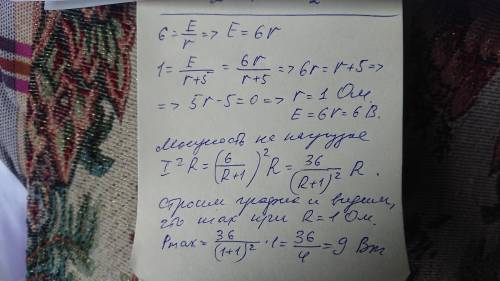 6 = E/r => E = 6r
1 = E/(r+5) = 6r/(r+5) => 6r = r+5 =>
=> 5r-5=0 => r = 1 Ом.
E = 6r = 6 В.
Мощность на нагрузке
I²R = (6/(R+1))² R = 36/(R+1)² R.
Строим график и видим,
что max при R = 1 Ом.
Pmax = 36/(1+1)² · 1 = 36/4 = 9 Вт